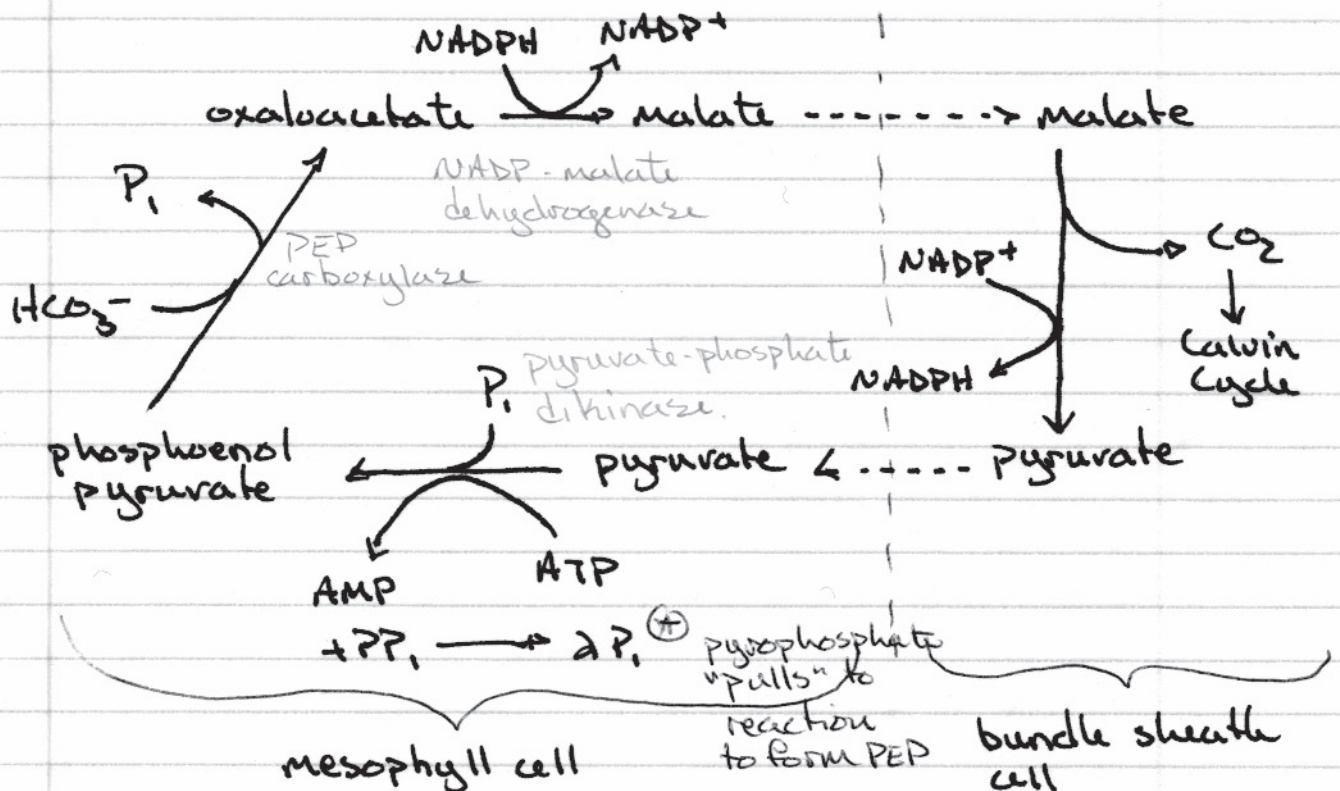 NADPH NADP+
oxaloacetate malate malate
NADP-malate
dehydrogenase
Pi
PEP
carboxylase
HCO3-
NADP+
CO2
NADPH
Calvin
Cycle
pyruvate-phosphate
dikinase.
Pi
phosphoenol
pyruvate
pyruvate
pyruvate
AMP
ATP
+PPi 2Pi
pyrophosphate
"pulls" to
reaction
to form PEP
mesophyll cell
bundle sheath
cell